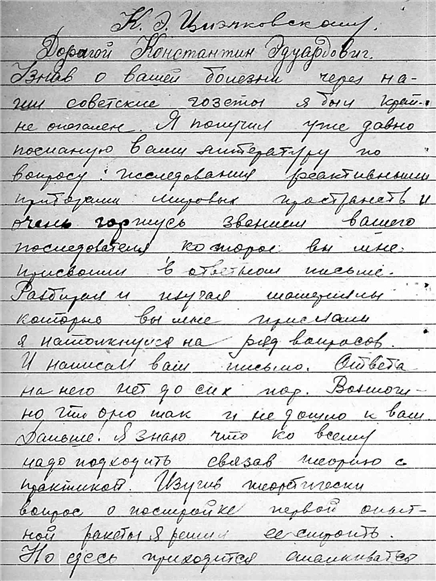 К. Э Циолковскому.
Дорогой Константин Эдуардович.
Узнав о вашей болезни через на-
ши советские газеты я был край-
не опечален. Я получил уже давно
посланую вами литературу по
вопросу: исследования реактивными
приборами мировых пространств и
очень горжусь званием вашего
последователя которое вы мне
присвоили в ответном письме.
Разбирая и изучая материалы
которые вы мне прислали
я натолкнулся на ряд вопросов.
И написал вам письмо. Ответа
на него нет до сих пор. Возмож-
но что оно так и не дошло к вам.
Дальше. Я знаю что ко всему
надо подходить связав теорию с
практикой. Изучив теоретически
вопрос о постройке первой опыт-
ной ракеты я решил ее строить.
Но здесь приходится сталкиватся